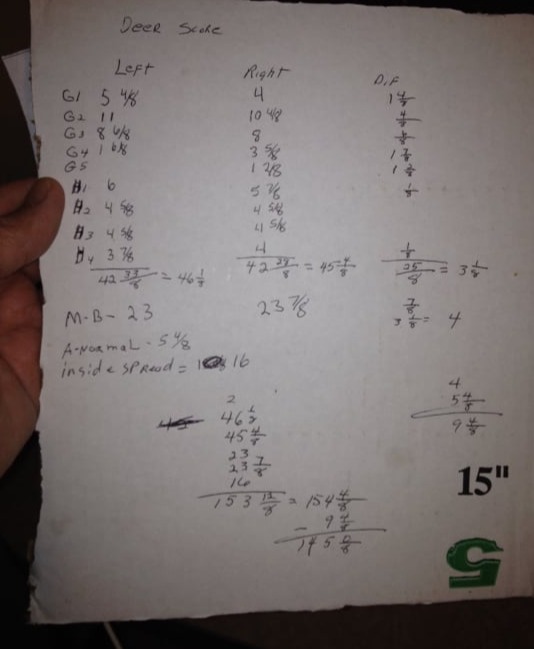 Deer Score
Left Right Dif
G1 5 4/8 4 1 4/8
G2 11 10 4/8 4/8
G3 8 6/8 8 6/8
G4 1 6/8 3 5/8 1 7/8
G5 1 2/8 1 2/8
H1 6 5 7/8 1/8
H2 4 5/8 4 5/8
H3 4 5/8 4 5/8
H4 3 7/8 4 1/8
42 33/8 = 46 1/8 42 28/8 = 45 4/8 25/8 = 3 1/8
M-B- 23 23 7/8 7/8
3 1/8 = 4
A-Normal - 5 4/8
inside SPread = 16
2 4
46 1/8 5 4/8
45 4/8 9 4/8
23
23 7/8
16
153 12/8 = 154 4/8
- 9 4/8
145 0/8
15"
5